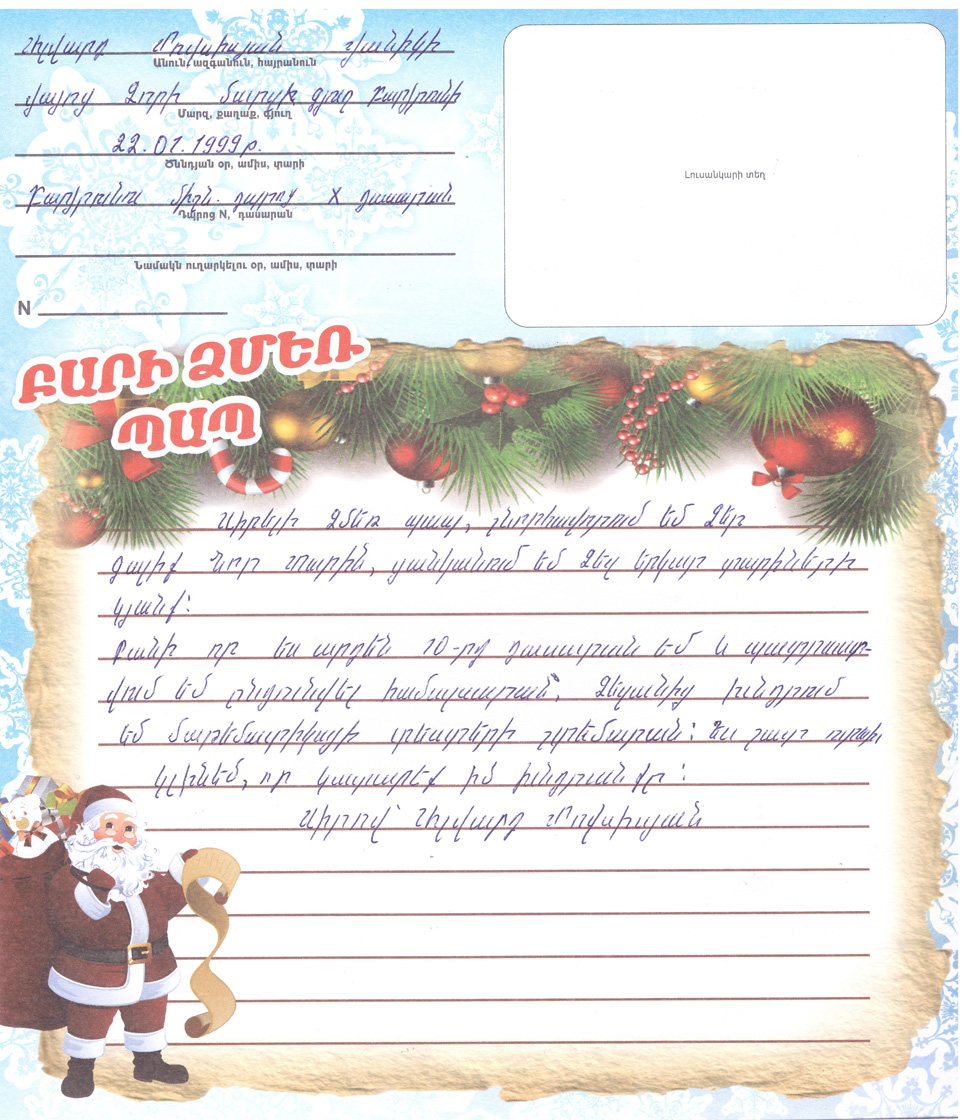 Հիլվարդ Մովսիսյան Հանիկի
Անուն, ազգանուն, հայրանուն
Վայոց Ձորի մարզ, գյուղ Բարձրունի
Մարզ, քաղաք, գյուղ
22.01.1999թ.
Ծննդյան օր, ամիս, տարի
Բարձրունու միջն. դպրոց X դասարան
Դպրոց N, դասարան
Նամակն ուղարկելու օր, ամիս, տարի
N
Լուսանկարի տեղ
ԲԱՐԻ ՁՄԵՌ
ՊԱՊ
Սիրելի Ձմեռ պապ, շնորհավորում եմ Ձեր
գալիք Նոր Տարին, ցանկանում եմ Ձեզ երկար տարիների
կյանք:
Քանի որ ես արդեն 10-րդ դասարան եմ և պատրաստ-
վում եմ ընդունվել համալսարան, Ձեզանից խնդրում
եմ մաթեմատիկայի թեստերի շտեմարան: Ես շատ ուրախ
կլինեմ, որ կատարեք իմ խնդրանքը:
Սիրով՝ Հիլվարդ Մովսիսյան